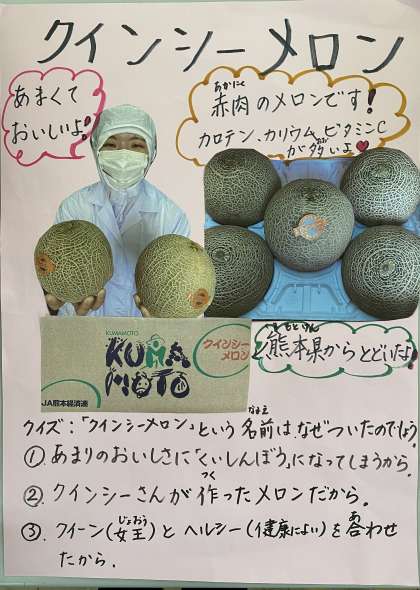 クインシーメロン
あまくて
おいしいよ!
赤肉のメロンです!
カロテン、カリウム、ビタミンC
が多いよ♥
KUMAMOTO
KUMA
MOTO
クインシー
メロン
JA熊本経済連
熊本県からとどいたよ!
クイズ:「クインシーメロン」という名前は、なぜついたのでしょう。
①あまりのおいしさに「くいしんぼう」になってしまうから。
②クインシーさんが作ったメロンだから。
③クイーン(女王)とヘルシー(健康によい)を合わせ
たから。